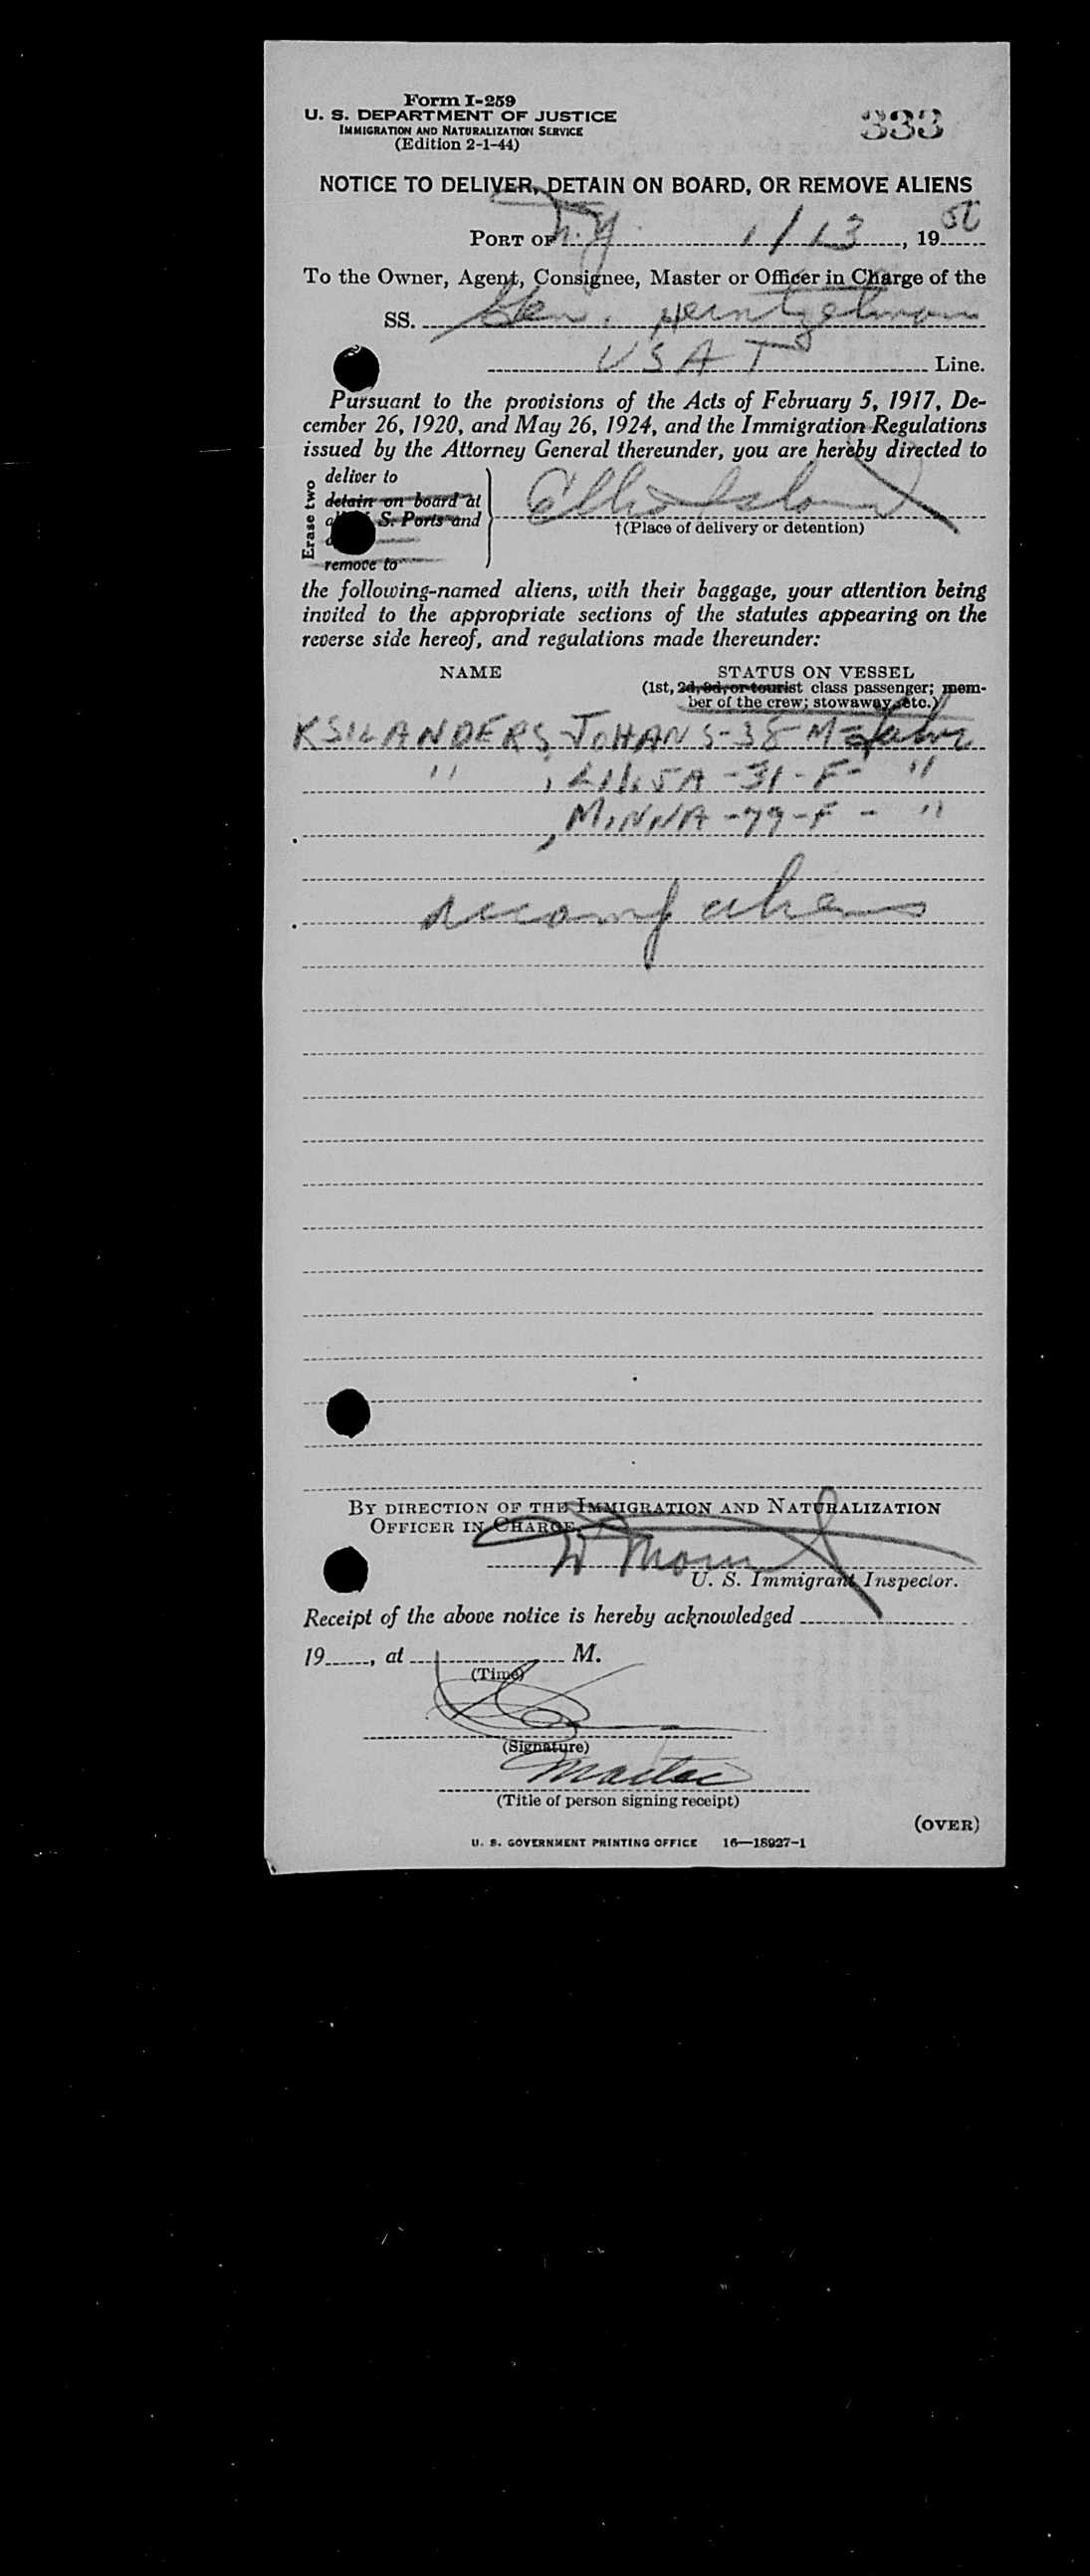 Form I-259
U. S. DEPARTMENT OF JUSTICE
IMMIGRATION AND NATURALIZATION SERVICE
(Edition 2-1-44)
333
NOTICE TO DELIVER, DETAIN ON BOARD, OR REMOVE ALIENS
PORT OF N.Y. 1/13, 1950
To the Owner, Agent, Consignee, Master or Officer in Charge of the
SS. Gen. Heintzelman
USAT Line.
Pursuant to the provisions of the Acts of February 5, 1917, De-
cember 26, 1920, and May 26, 1924, and the Immigration Regulations
issued by the Attorney General thereunder, you are hereby directed to
Erase two
deliver to
detain on board at
S. Ports and
remove to
Ellis Island
†(Place of delivery or detention)
the following-named aliens, with their baggage, your attention being
invited to the appropriate sections of the statutes appearing on the
reverse side hereof, and regulations made thereunder:
NAME STATUS ON VESSEL
(1st, 2d, 3d, or tourist class passenger; mem-
ber of the crew; stowaway, etc.)
KSILANDERS, JOHANS-38 M-
" , -31-F- "
, MINNA -79-F - "
accomp aliens
BY DIRECTION OF THE IMMIGRATION AND NATURALIZATION
OFFICER IN CHARGE.
U. S. Immigrant Inspector.
Receipt of the above notice is hereby acknowledged
19, at M.
(Time)
(Signature)
Master
(Title of person signing receipt)
(OVER)
U. S. GOVERNMENT PRINTING OFFICE 16—18927-1